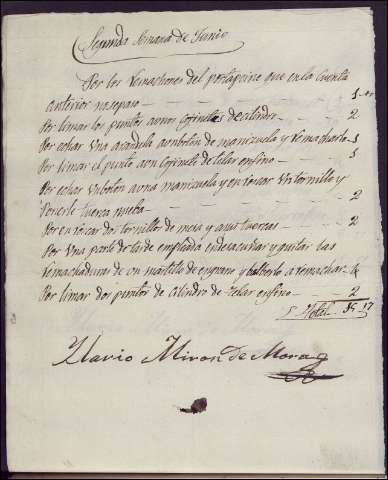 Segunda Semana de Junio
Por los remachones del portapeine que en la cuenta
anterior no se paso - - - 1 -
Por limar los puntos a unos cojinetes de cilindro - - 2
Por echar una arandela a un boton de manizuela y remacharlo - 1
Por limar el punto a un cojinete de telar en fino - 1
Por echar un boton a una manizuela y enroscar un tornillo y
Ponerle tuerca nueba - - - 2
Por enroscar dos tornillos de mesa y a sus tuercas - - 2
Por una parte de tarde empleada en desacuñar y quitar las
remachaduras de un martillo de engrane y bolberlo a remachar - 4
Por limar dos puntos de cilindro de telar en fino - 2
Total 17
Ylario Miron de Mora